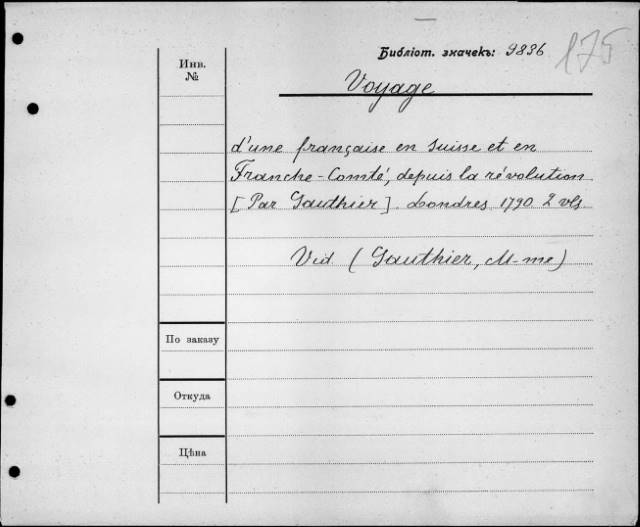 Библіот. значекъ: 9836
175
Инв. №
Voyage
d'une française en Suisse et en
Franche-Comté, depuis la révolution
[Par Gauthier]. Londres 1790 2 vls.
Vid (Gauthier, M-me)
По заказу
Откуда
Цѣна